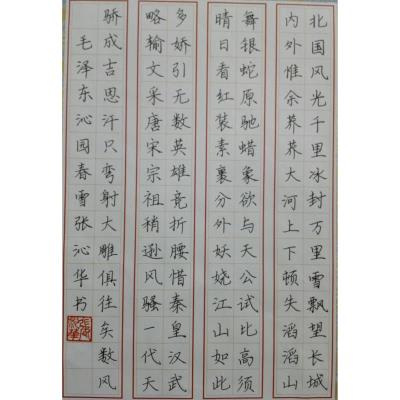 北国风光千里冰封万里雪飘望长城
内外惟余莽莽大河上下顿失滔滔山
舞银蛇原驰蜡象欲与天公试比高须
晴日看红装素裹分外妖娆江山如此
多娇引无数英雄竞折腰惜秦皇汉武
略输文采唐宋宗祖稍逊风骚一代天
骄成吉思汗只弯射大雕俱往矣数风
毛泽东沁园春雪张沁华书